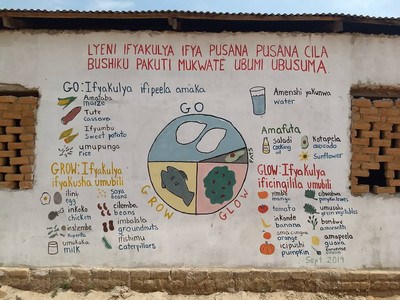 LYENI IFYAKULYA IFYA PUSANA PUSANA CILA
BUSHIKU PAKUTI MUKWATE UBUMI UBUSUMA.
GO: Ifyakulya ifipeela amaka
Amataba
maize
Tute
cassava
Ifyumbu
sweet potato
umupunga
rice
GO
GROW
GLOW
FATS
Amenshi yakunwa
water
Amafuta
saladi
cooking oil
Kotapela
avocado
Sunflower
GROW: Ifyakulya
ifyakusha umubili
ilini
egg
inkoko
chicken
umukaka
milk
soya beans
cilemba
beans
imbalala
groundnuts
ifishimu
caterpillars
GLOW: Ifyakulya
ificingilila umubili
mango
tomato
inkonde
banana
orange
icipushi
pumpkin
pumpkin leaves
bondwe
amaranth
amapeela
guava
Sept. 2019